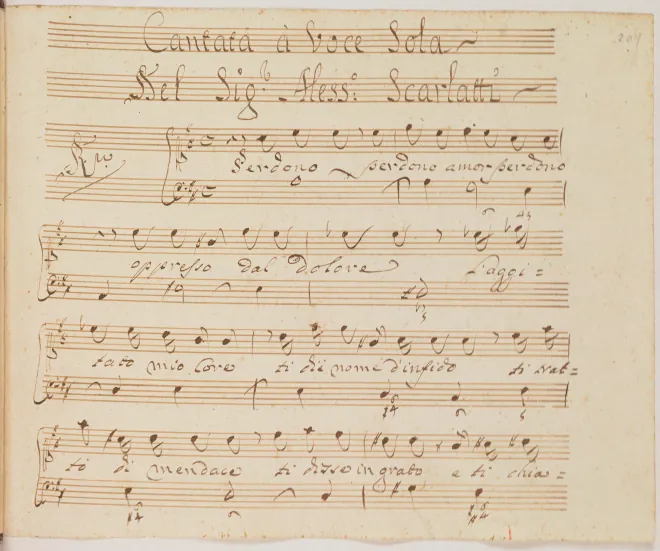 Cantata à Voce Sola
Del Sig.r Aless.o Scarlatti
R.vo
Perdono perdono amor perdono
oppresso dal dolore l'aggi=
tato mio Core ti diè nome d'infido ti trat=
tò di mendace ti disse ingrato e ti chia=